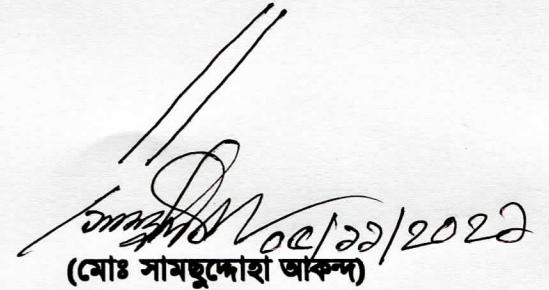 ০৫/১১/২০২১
(মোঃ সামছুদ্দোহা আকন্দ)